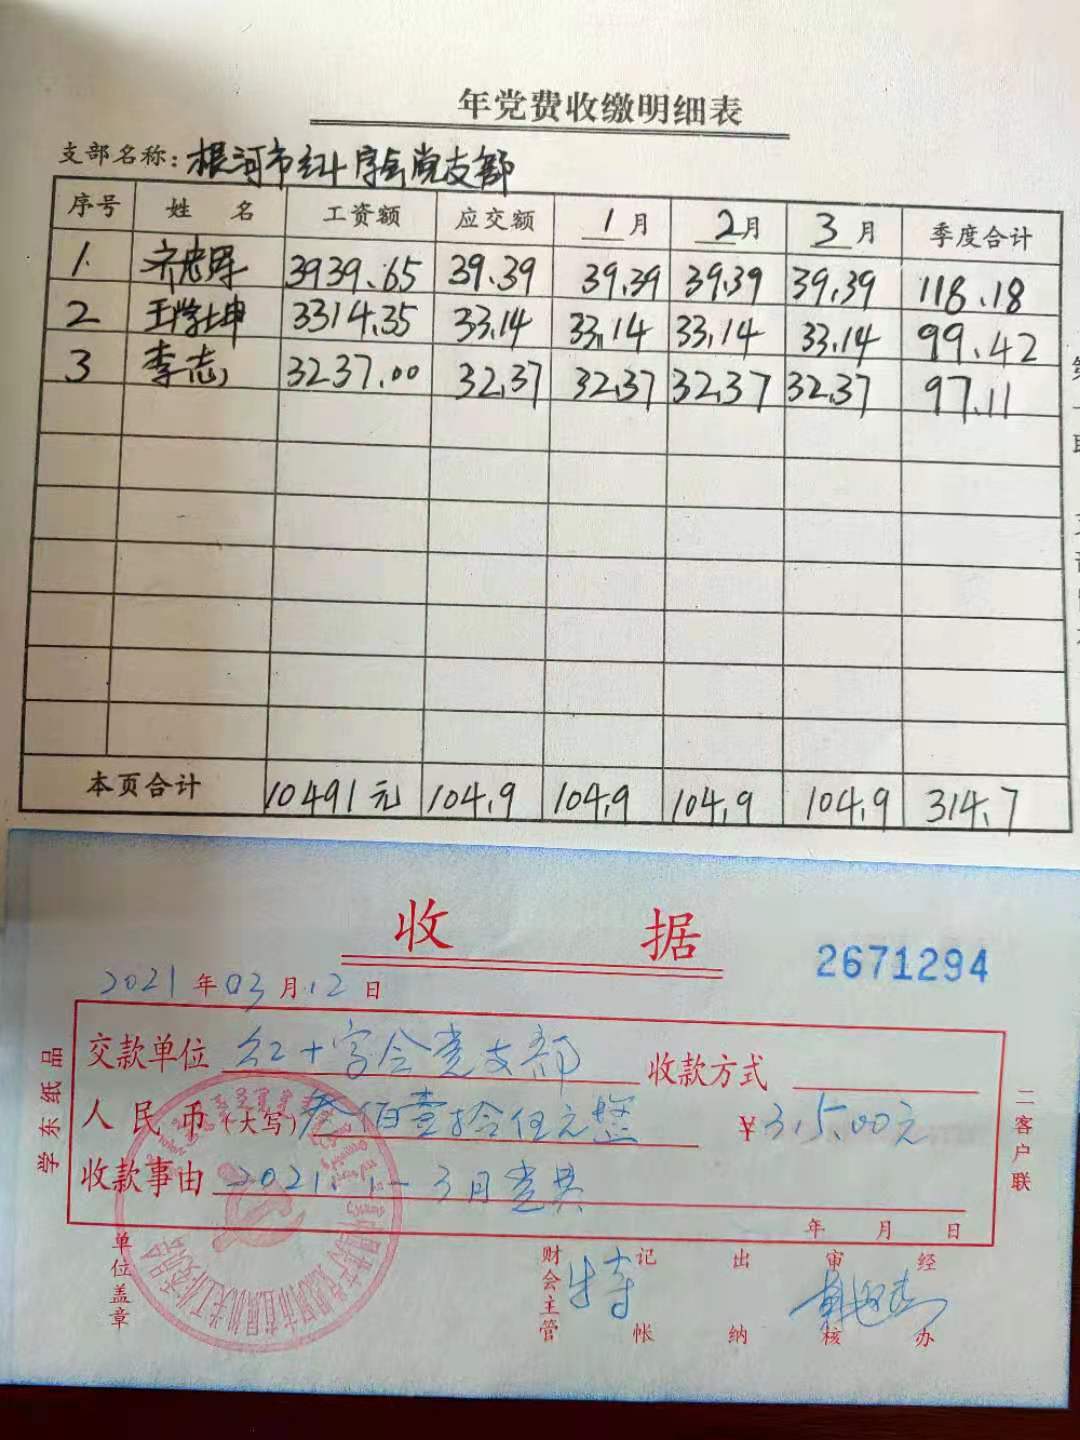 年党费收缴明细表
支部名称：根河市红十字会党支部
序号 姓 名 工资额 应交额 1月 2月 3月 季度合计
1. 3939.65 39.39 39.39 39.39 39.39 118.18
2 王学坤 3314.35 33.14 33.14 33.14 33.14 99.42
3 李志 3237.00 32.37 32.37 32.37 32.37 97.11
本页合计 10491元 104.9 104.9 104.9 104.9 314.7
收 据
2671294
2021年03月12日
交款单位 红十字会党支部 收款方式
人民币(大写) 叁佰壹拾伍元整 ¥315.00元
收款事由 2021.1-3月党费
年 月 日
单位盖章 财会主管 记帐 出纳 审核 经办
学东纸品
二客户联